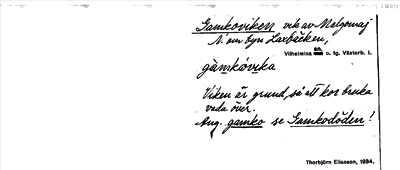 Gamkoviken vik av Malgomaj
N. om byn Laxbäcken,
Vilhelmina sn o. tg. Västerb. l.
gàmkóvika
Viken är grund så att kor bruka
vada över.
Ang. gamko se Gamkodöden!
Thorbjörn Eliasson, 1934.